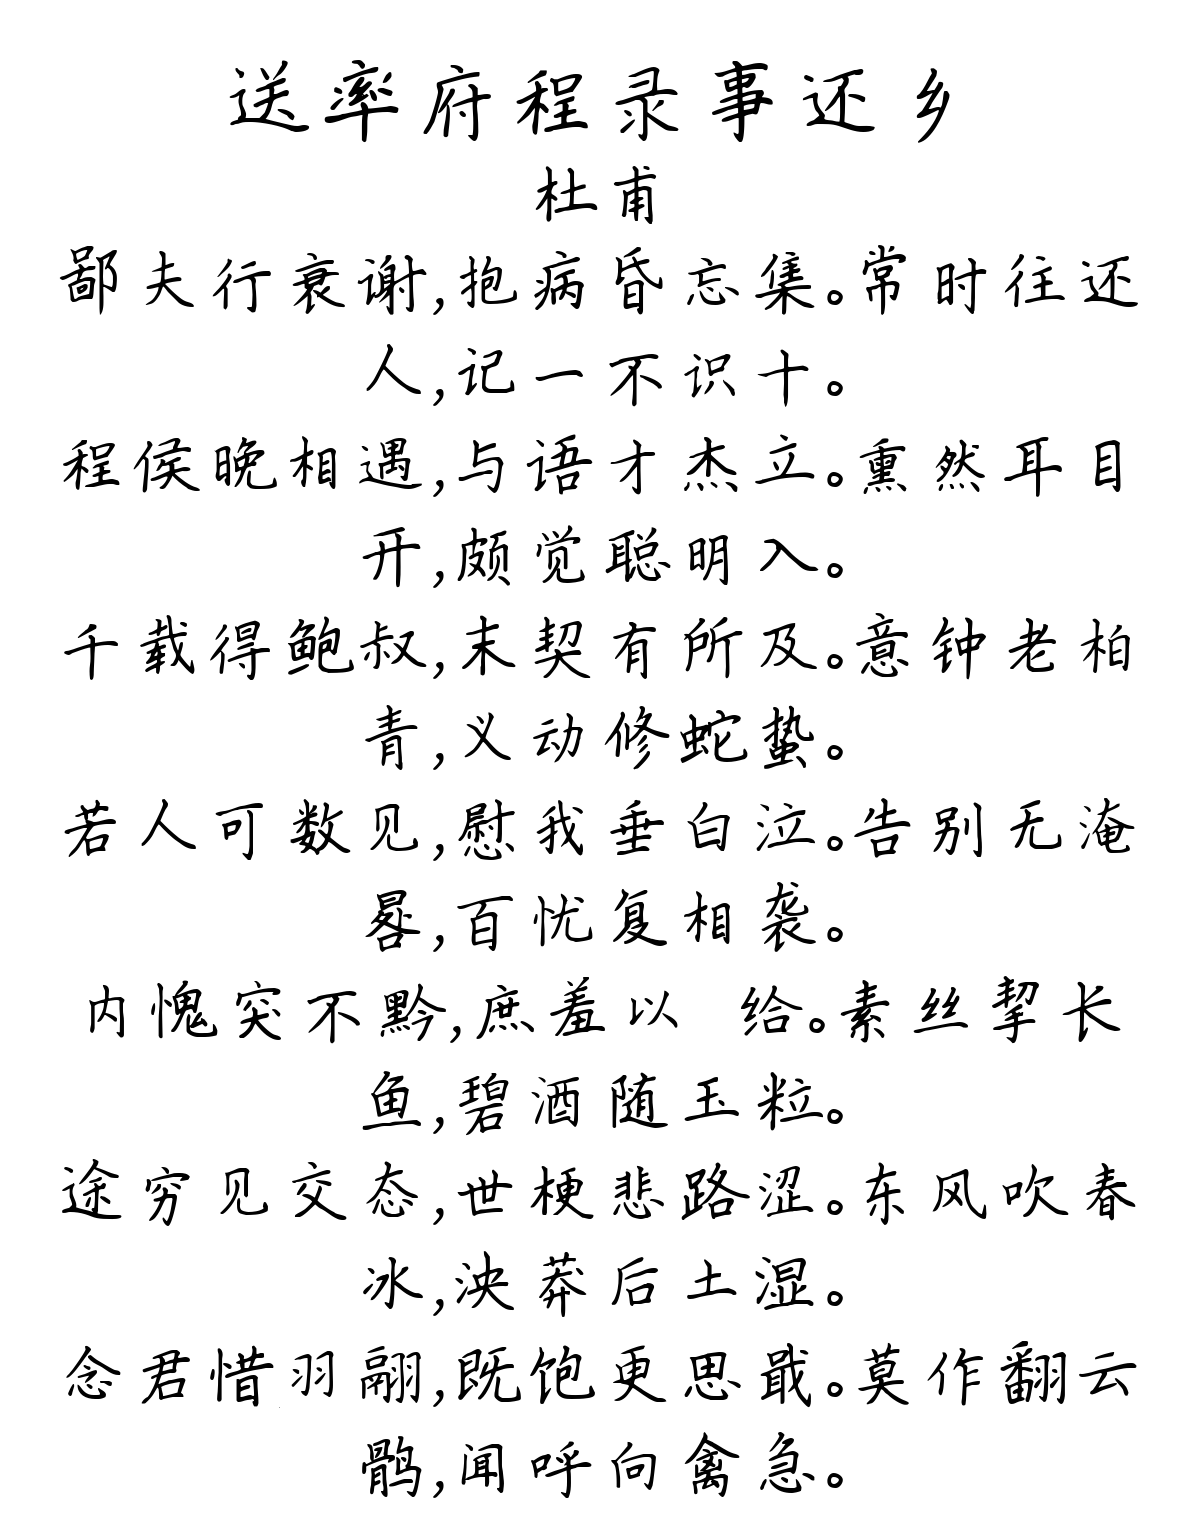 送率府程录事还乡
杜甫
鄙夫行衰谢,抱病昏忘集。常时往还
人,记一不识十。
程侯晚相遇,与语才杰立。熏然耳目
开,颇觉聪明入。
千载得鲍叔,末契有所及。意钟老柏
青,义动修蛇蛰。
若人可数见,慰我垂白泣。告别无淹
晷,百忧复相袭。
内愧突不黔,庶羞以 给。素丝挈长
鱼,碧酒随玉粒。
途穷见交态,世梗悲路涩。东风吹春
冰,泱莽后土湿。
念君惜羽翮,既饱更思戢。莫作翻云
鹘,闻呼向禽急。